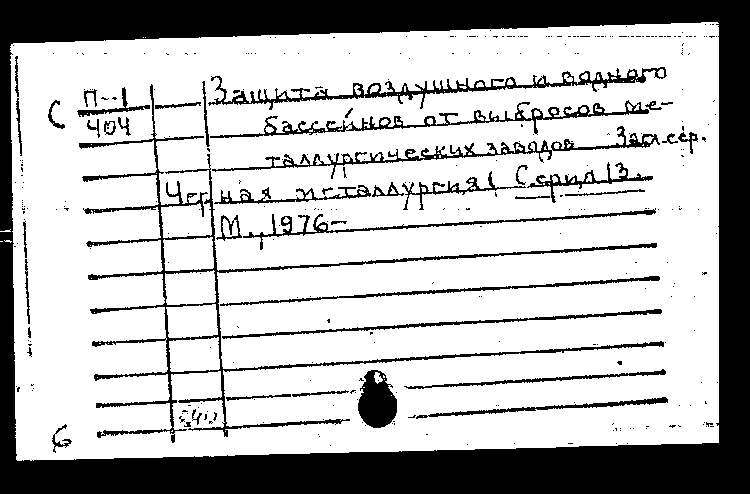 С П-1 Защита воздушного и водного
404 бассейнов от выбросов ме-
таллургических заводов Загл.сер.
Черная металлургия( Серия 13.
М., 1976-
б